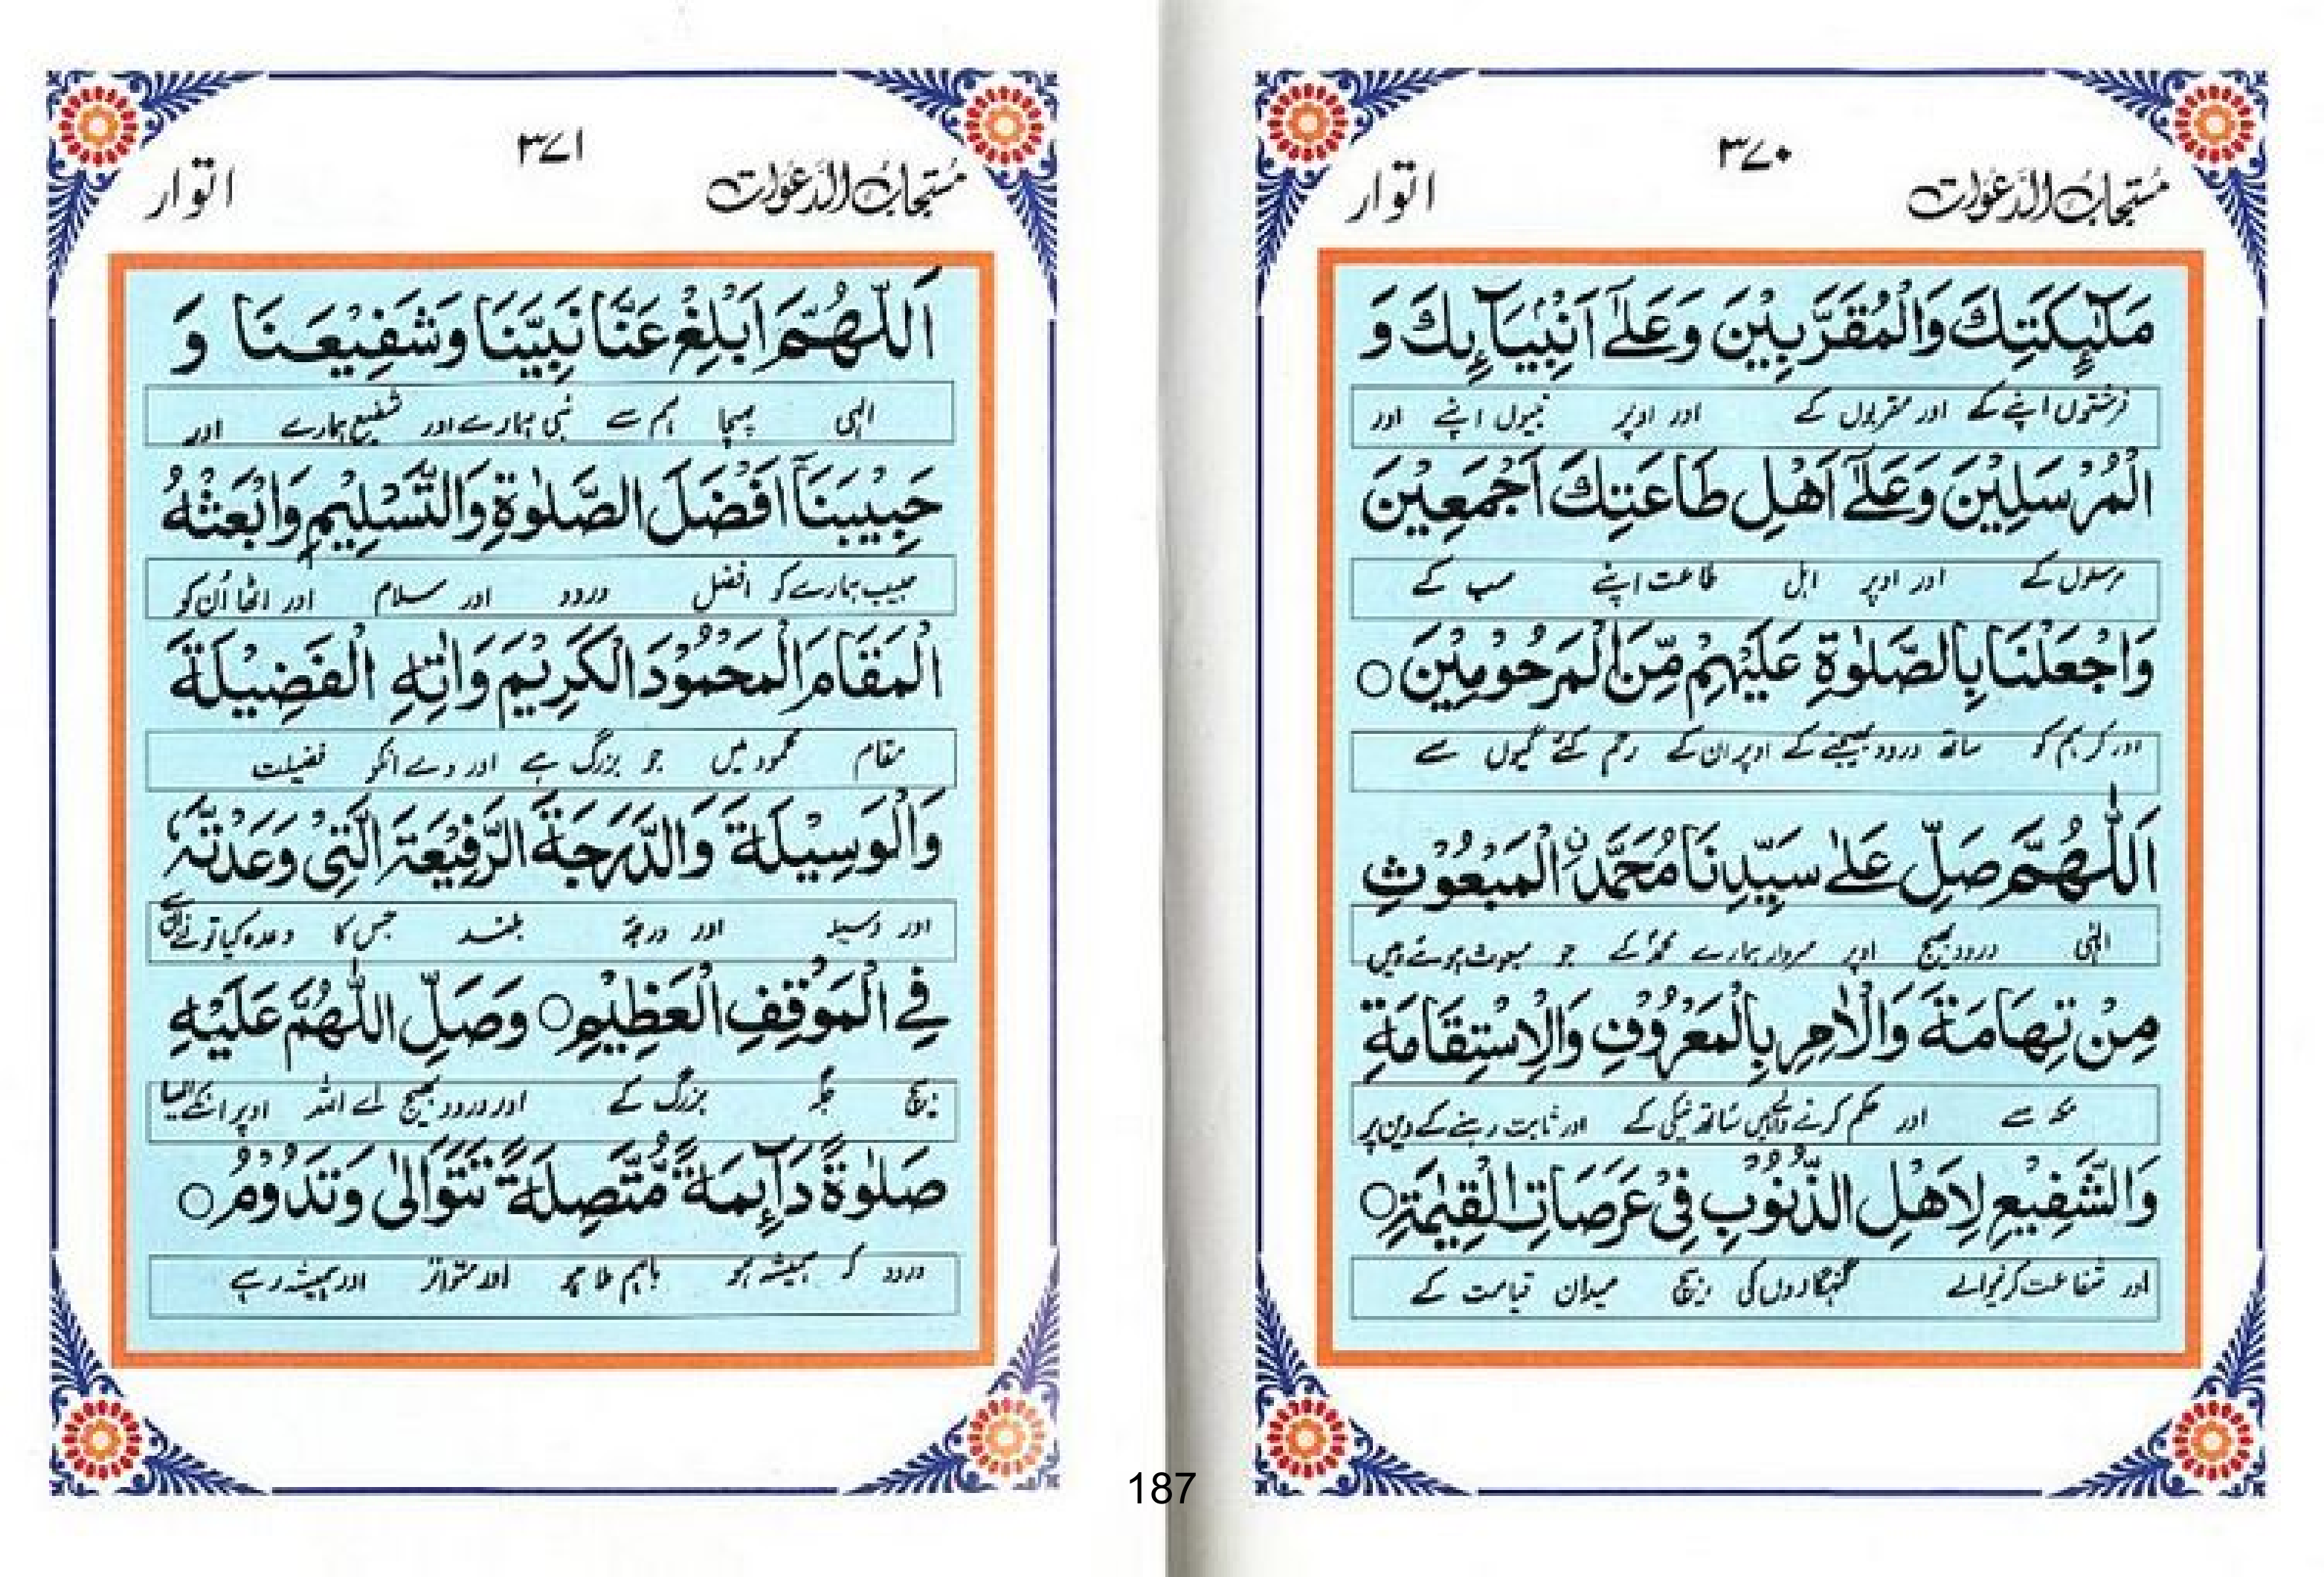 ۳۷۰
مُستجابُ الدَّعَوات
اتوار
مَلٰٓئِكَتِكَ وَالْمُقَرَّبِيْنَ وَعَلٰٓى اَنْۢبِيَآئِكَ وَ
فرشتوں اپنے کے اور مقربوں کے اور اوپر نبیوں اپنے اور
الْمُرْسَلِيْنَ وَعَلٰٓى اَهْلِ طَاعَتِكَ اَجْمَعِيْنَ
مرسلوں کے اور اوپر اہل طاعت اپنے سب کے
وَاجْعَلْنَا بِالصَّلٰوةِ عَلَيْهِمْ مِّنَ الْمَرْحُوْمِيْنَ ○
اور کر ہم کو ساتھ درود بھیجنے کے اوپر ان کے رحم کئے گیوں سے
اَللّٰهُمَّ صَلِّ عَلٰى سَيِّدِنَا مُحَمَّدِ نِ الْمَبْعُوْثِ
الٰہی درود بھیج اوپر سردار ہمارے محمدؐ کے جو مبعوث ہوئے ہیں
مِنْ تِهَامَةَ وَالْاٰمِرِ بِالْمَعْرُوْفِ وَالْاِسْتِقَامَةِ
مکہ سے اور حکم کرنے والے ہیں ساتھ نیکی کے اور ثابت رہنے کے دین پر
وَالشَّفِيْعِ لِاَهْلِ الذُّنُوْبِ فِيْ عَرَصَاتِ الْقِيٰمَةِ ○
اور شفاعت کرنیوالے گنہگاروں کی بیچ میدان قیامت کے
۳۷۱
مُستجابُ الدَّعَوات
اتوار
اَللّٰهُمَّ اَبْلِغْ عَنَّا نَبِيَّنَا وَشَفِيْعَنَا وَ
الہی پہنچا ہم سے نبی ہمارے اور شفیع ہمارے اور
حَبِيْبَنَآ اَفْضَلَ الصَّلٰوةِ وَالتَّسْلِيْمِ وَابْعَثْهُ
حبیب ہمارے کو افضل درود اور سلام اور اٹھا اُن کو
الْمَقَامَ الْمَحْمُوْدَ الْكَرِيْمَ وَاٰتِهِ الْفَضِيْلَةَ
مقام محمود میں جو بزرگ ہے اور دے انکو فضیلت
وَالْوَسِيْلَةَ وَالدَّرَجَةَ الرَّفِيْعَةَ الَّتِيْ وَعَدْتَّهٗ
اور وسیلہ اور درجہ بلند جس کا وعدہ کیا تو نے
فِي الْمَوْقِفِ الْعَظِيْمِ ○ وَصَلِّ اللّٰهُمَّ عَلَيْهِ
بیچ جگہ بزرگ کے اور درود بھیج اے اللہ اوپر انکے ایسا
صَلٰوةً دَآئِمَةً مُّتَّصِلَةً تَتَوَالٰى وَتَدُوْمُ ○
درود کہ ہمیشہ ہو باہم ملا ہو اور متواتر اور ہمیشہ رہے
187